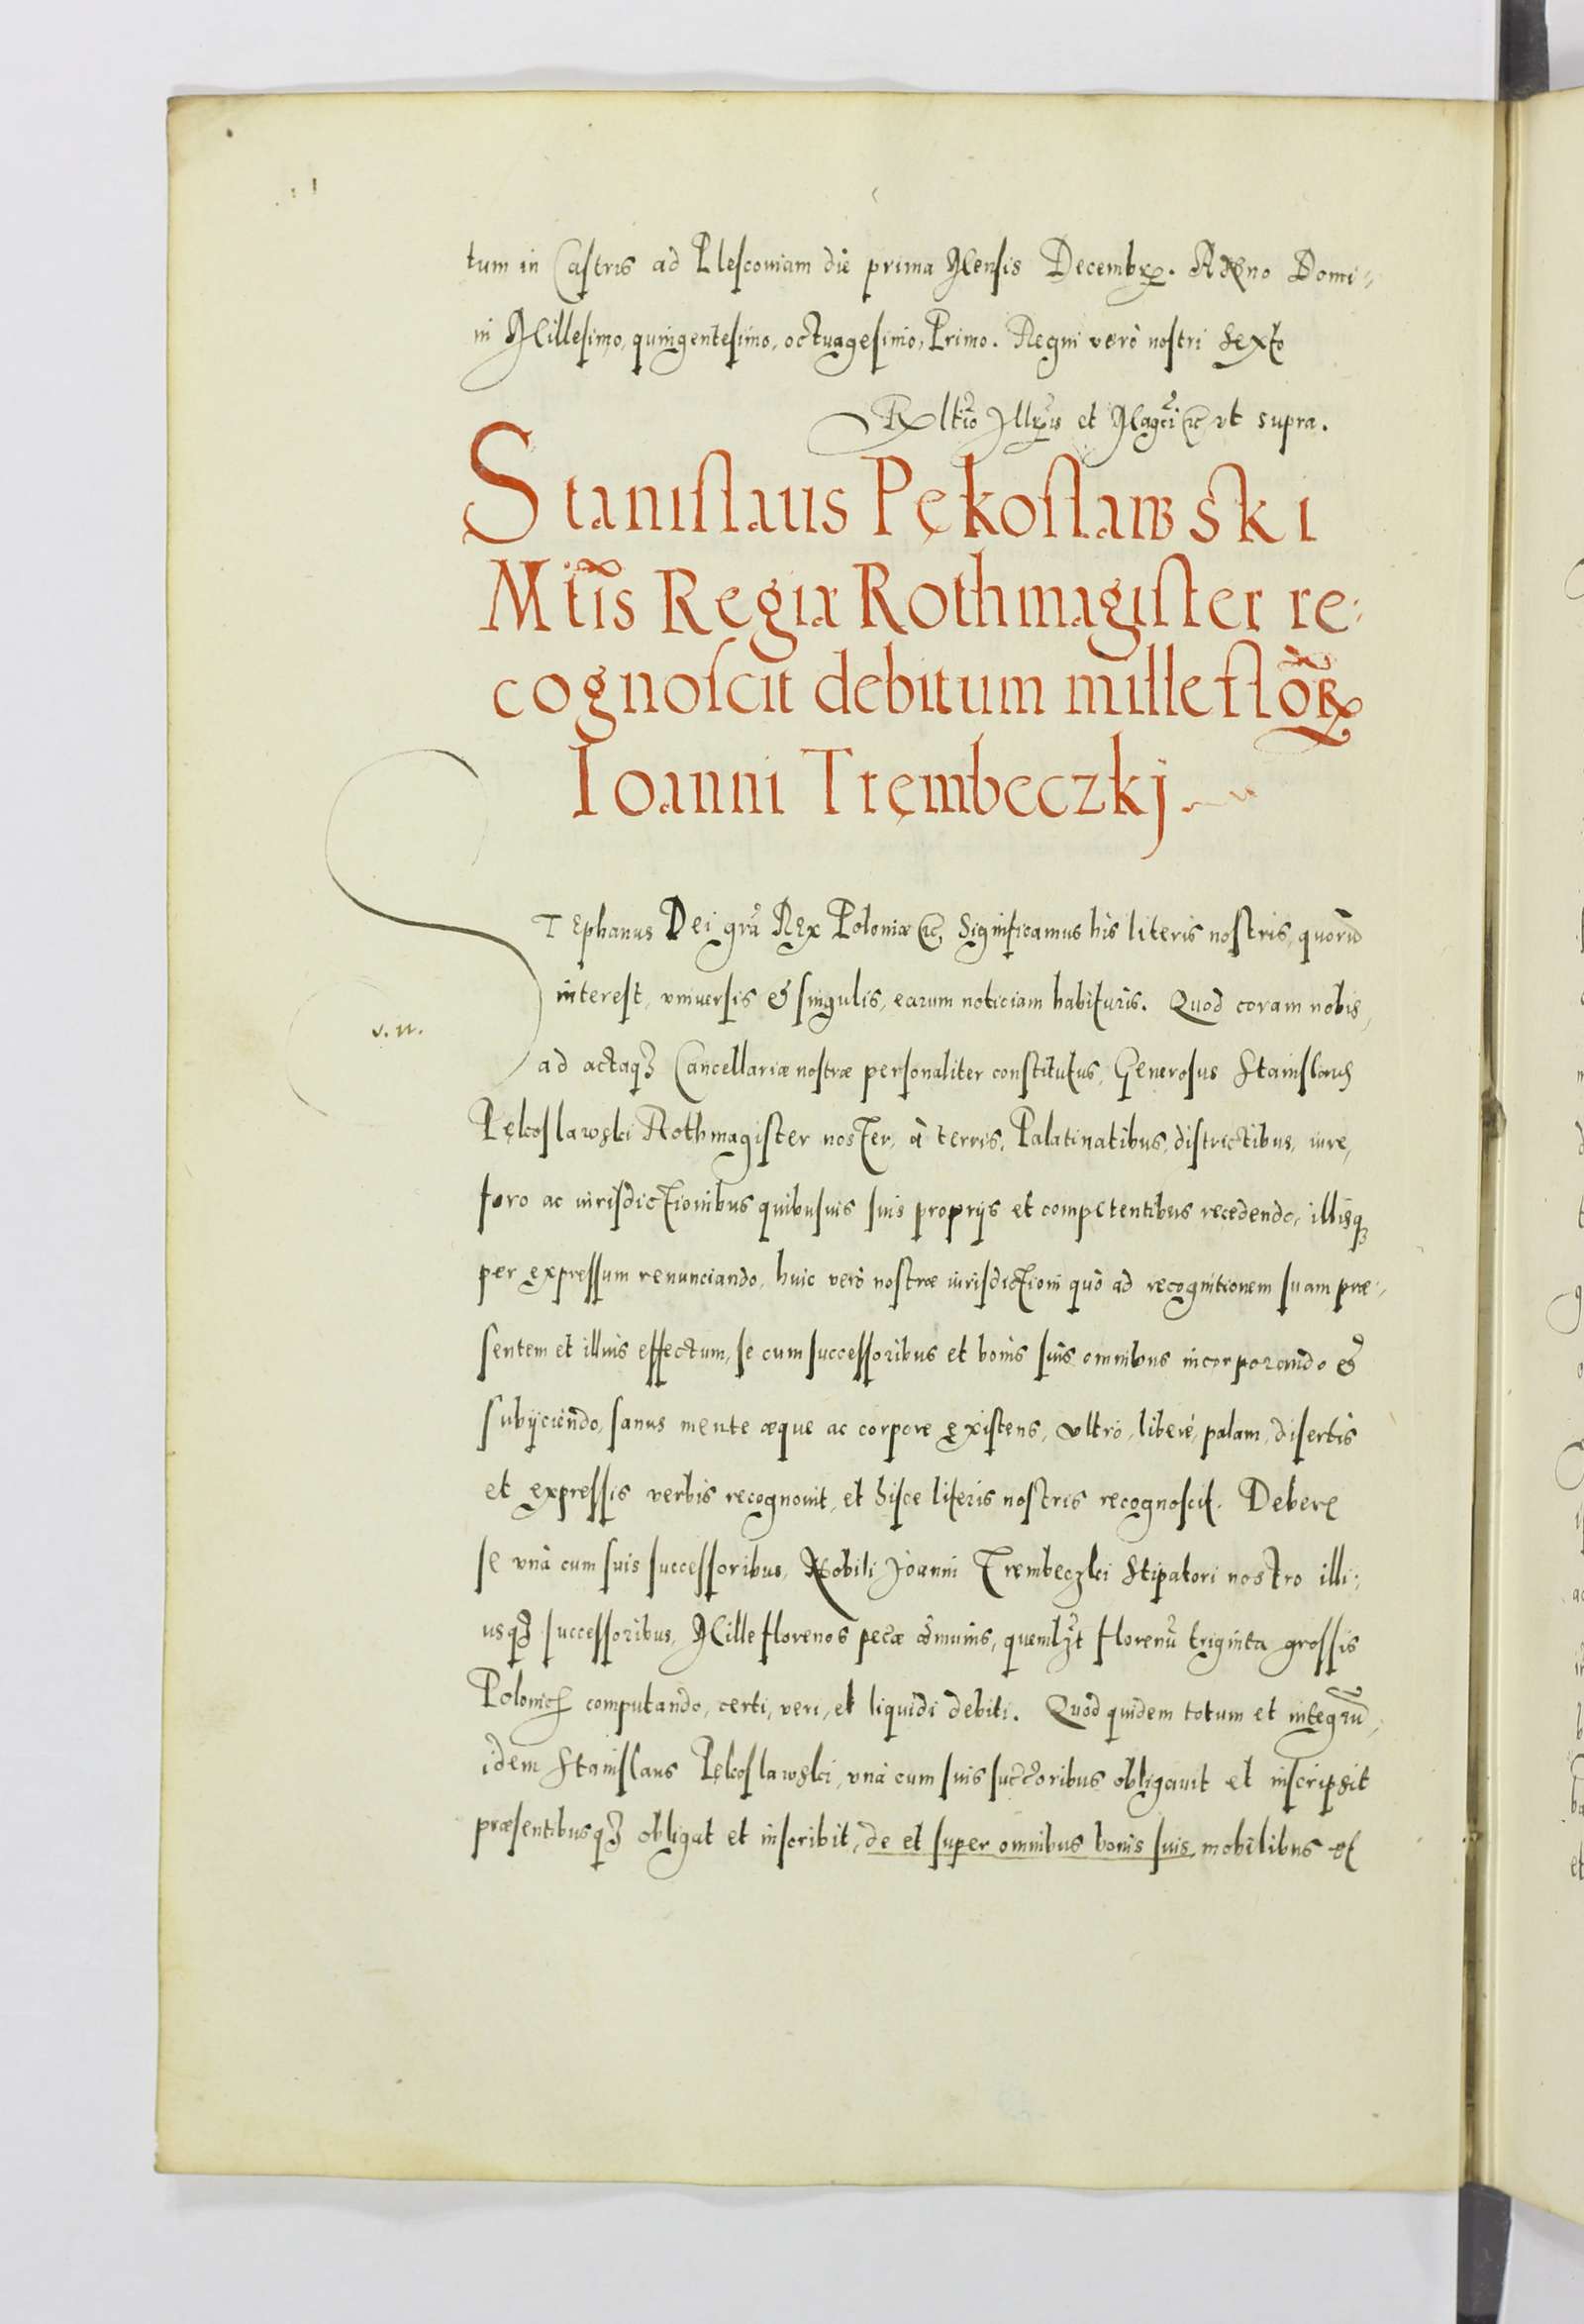 tum in Castris ad Plescoviam die prima Mensis Decembr. Anno Domi-
ni Millesimo, quingentesimo, octuagesimo, Primo. Regni verò nostri Sexto
Rltio Illris et Magci etc. vt supra.
Stanislaus Pękoslawski
Mtis Regiæ Rothmagister re-
cognoscit debitum mille flor
Ioanni Trembeczkj.
STEphanus Dei gra REx Poloniæ etc. Significamus his literis nostris, quorũ
interest, vniuersis & singulis, earum noticiam habituris. Quod coram nobis,
v. n.
ad actaqȝ Cancellariæ nostræ personaliter constitutus, Generosus Stanislaus
Pękoslawski Rothmagister noster, à terris, Palatinatibus, districtibus, iure,
foro ac iurisdictionibus quibusuis suis proprijs et competentibus recedendo, illisqȝ
per expressum renunciando, huic verò nostræ iurisdictioni quò ad recognitionem suam præ-
sentem et illius effectum, se cum successoribus et bonis suis omnibus incorporando &
subijciendo, sanus mente æque ac corpore existens, vltro, liberè, palam, disertis
et expressis verbis recognouit, et hisce literis nostris recognoscit. Debere
se vnà cum suis successoribus, Nobili Joanni Trembeczki Stipatori nostro illi-
usqȝ successoribus, Mille florenos pecæ cõmunis, quemlȝt florenũ triginta grossis
Polonic. computando, certi, veri, et liquidi debiti. Quod quidem totum et integrũ,
idem Stanislaus Pękoslawski, vnà cum suis succoribus obligauit et inscripsit
præsentibusqȝ obligat et inscribit, de et super omnibus bonis suis, mobilibus et